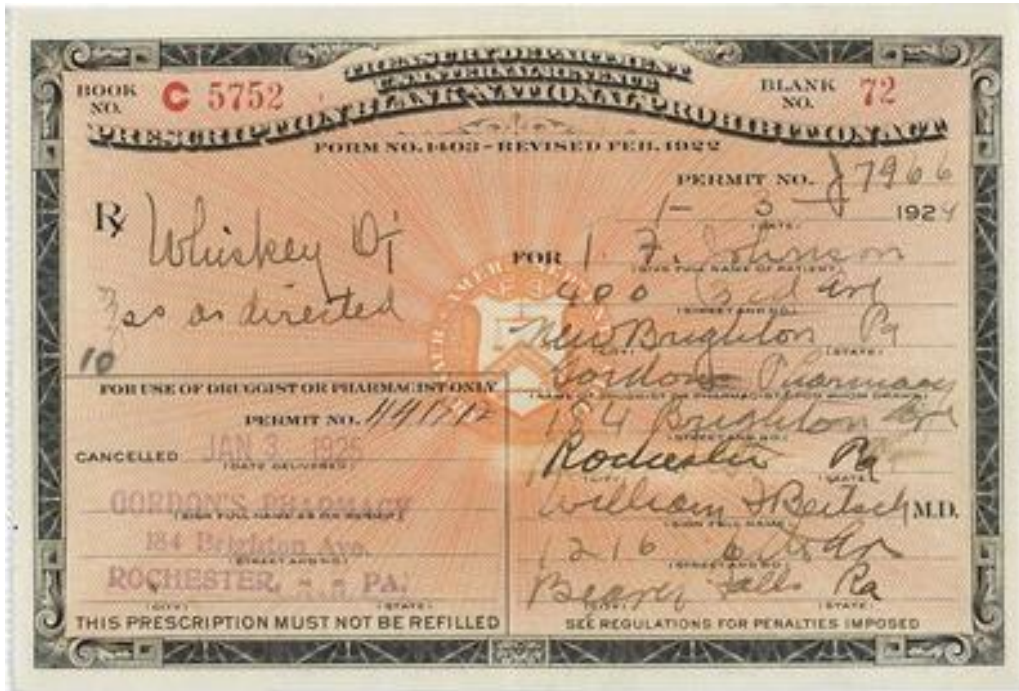 TREASURY DEPARTMENT
U.S. INTERNAL REVENUE
BOOK NO. C 5752
BLANK NO. 72
PRESCRIPTION BLANK-NATIONAL PROHIBITION ACT
FORM NO. 1403-REVISED FEB. 1922
PERMIT NO. 7966
1- 3 1924
(DATE)
Rx Whiskey
as directed
10
FOR Johnson
(GIVE FULL NAME OF PATIENT)
400 3rd Ave
(STREET AND NO.)
New Brighton Pa
(CITY) (STATE)
Gordon Pharmacy
(NAME OF DRUGGIST OR PHARMACIST FOR WHOM DRAWN)
184 Brighton Ave
(STREET AND NO.)
Rochester Pa
(CITY) (STATE)
William M.D.
(SIGN FULL NAME)
1216 6th Av
(STREET AND NO.)
Beaver Falls Pa
(CITY) (STATE)
SEE REGULATIONS FOR PENALTIES IMPOSED
FOR USE OF DRUGGIST OR PHARMACIST ONLY
PERMIT NO.
CANCELLED JAN 3 1925
(DATE DELIVERED)
GORDON'S PHARMACY
184 Brighton Ave.
(STREET AND NO.)
ROCHESTER, - - PA.
(CITY) (STATE)
THIS PRESCRIPTION MUST NOT BE REFILLED